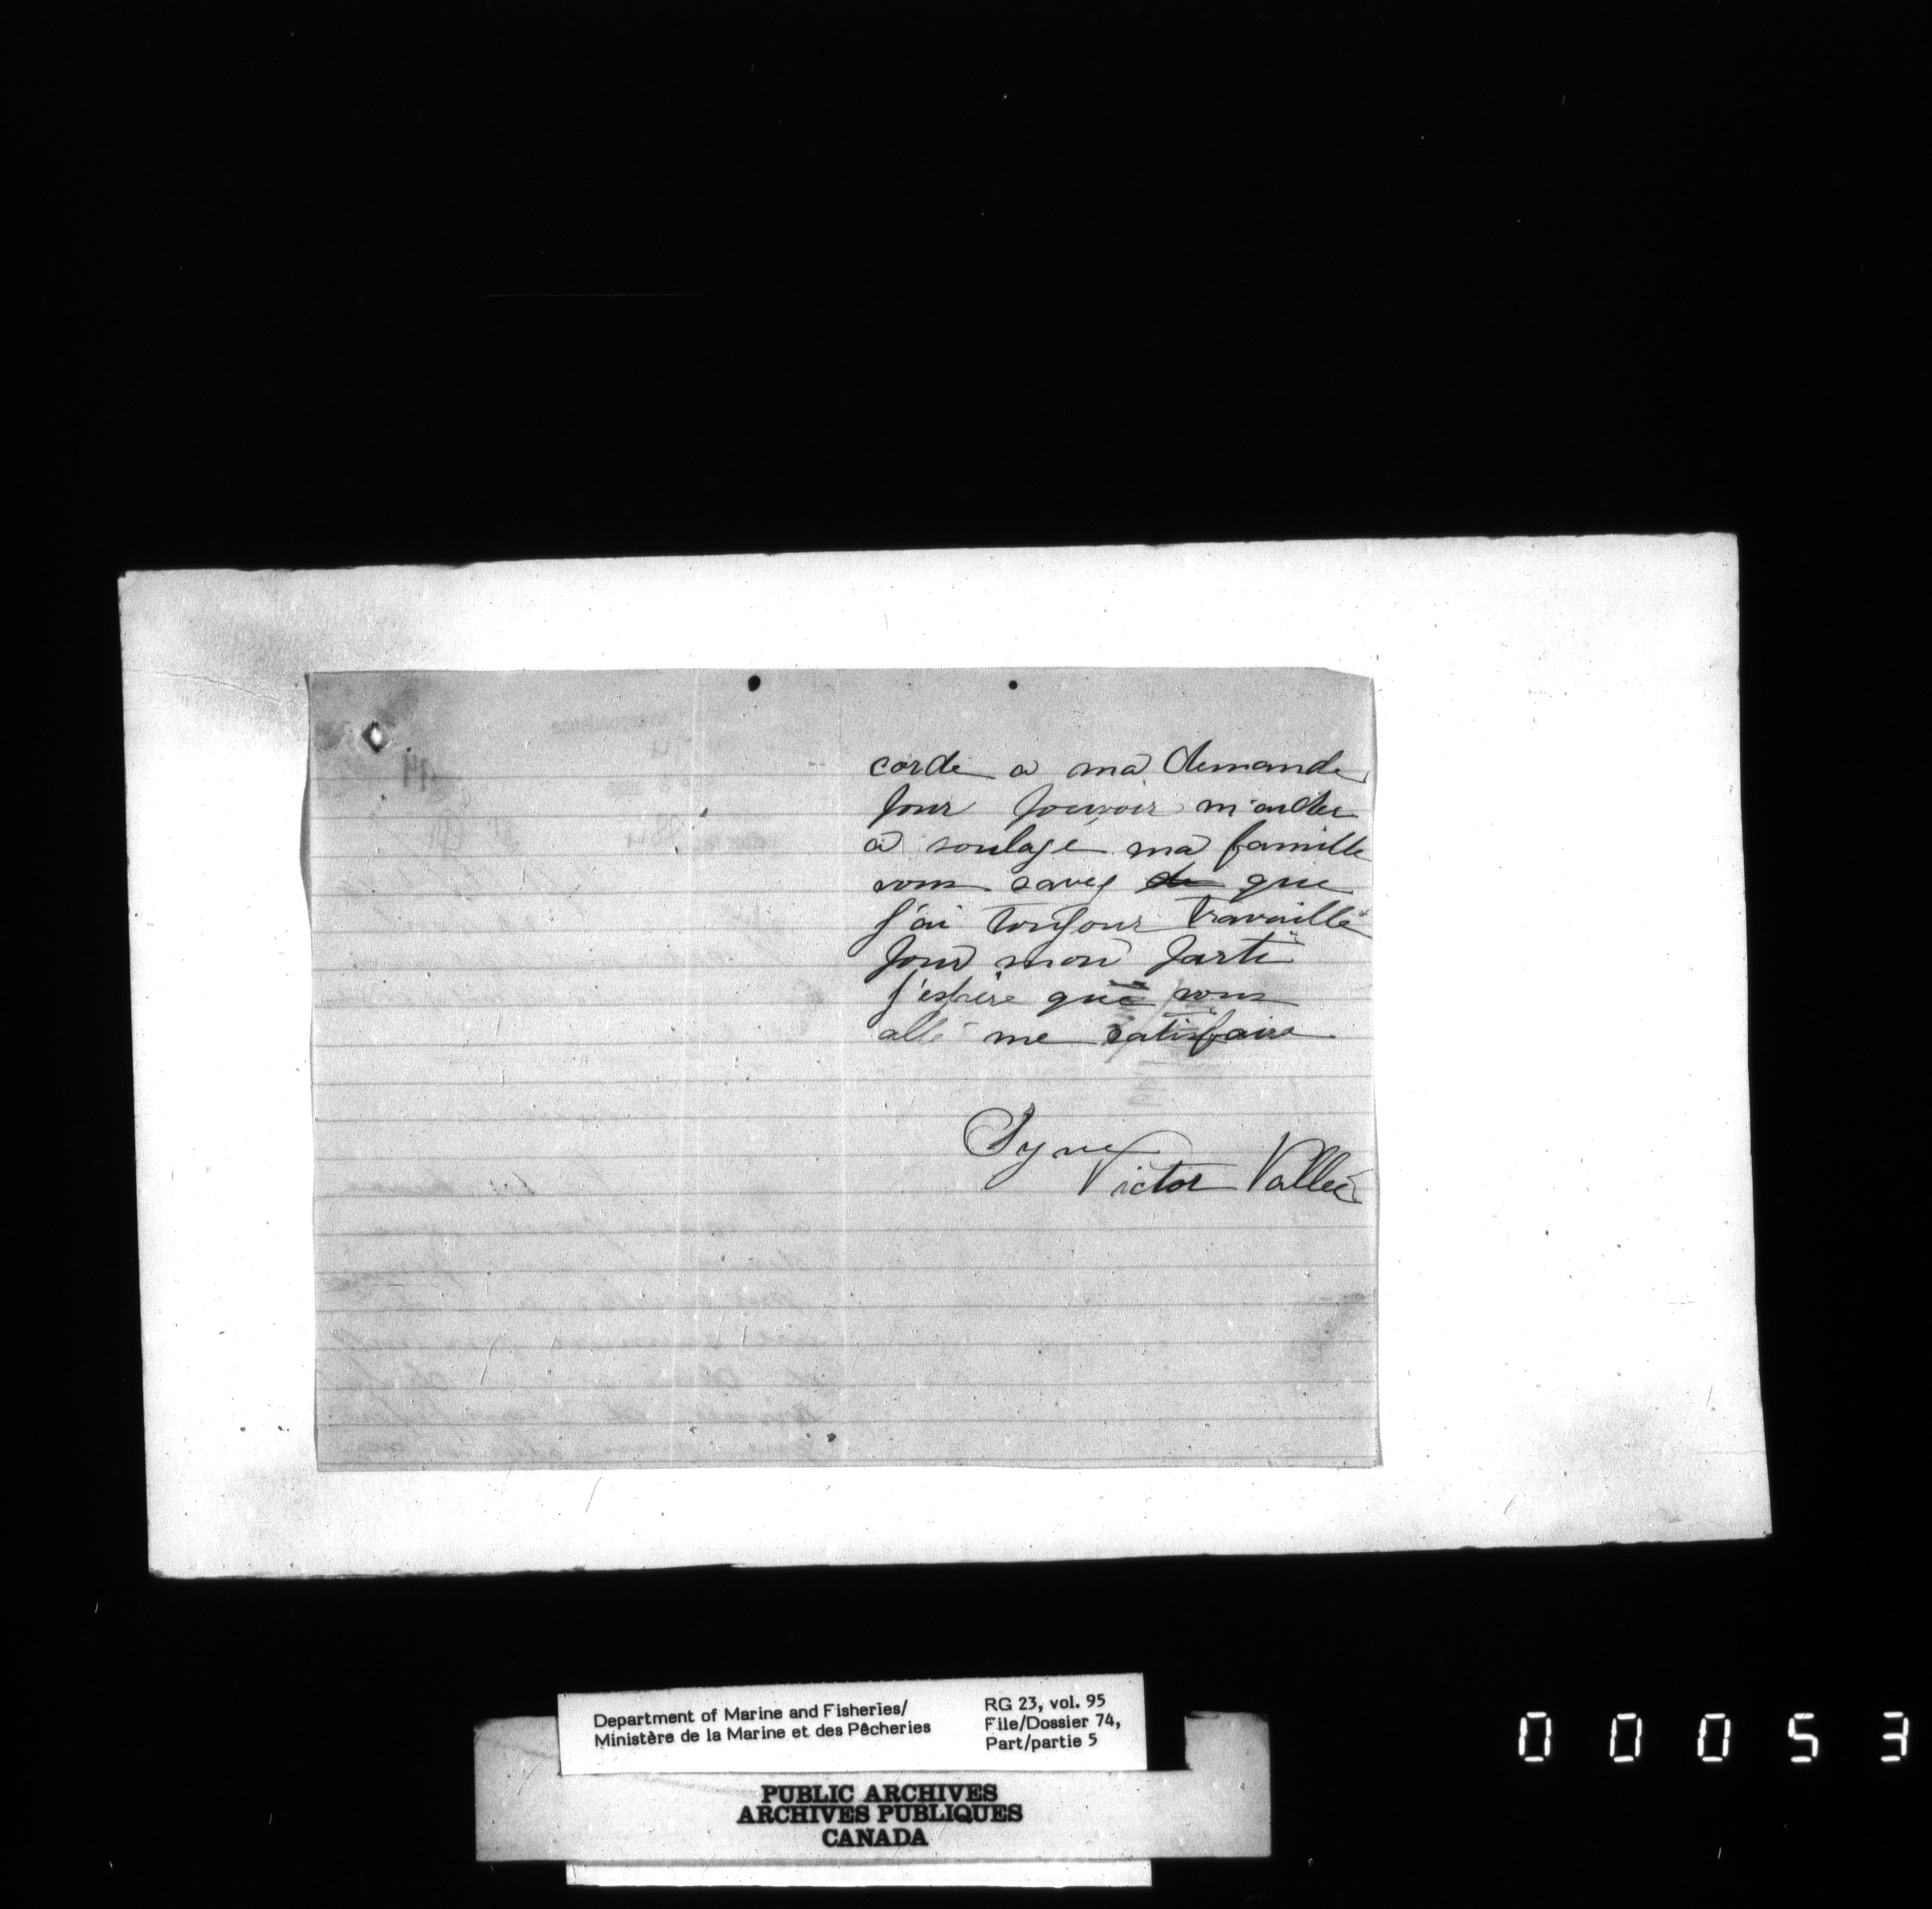 corde a ma demande
pour pouvoir m'aider
a soulagé ma famille
vous savez de que
j'ai toujour travaillé
pour mon parti
j'espère que vous
allé me satisfaire
Syne
Victor Vallée
Department of Marine and Fisheries/
Ministère de la Marine et des Pêcheries
RG 23, vol. 95
File/Dossier 74,
Part/partie 5
PUBLIC ARCHIVES
ARCHIVES PUBLIQUES
CANADA
00053